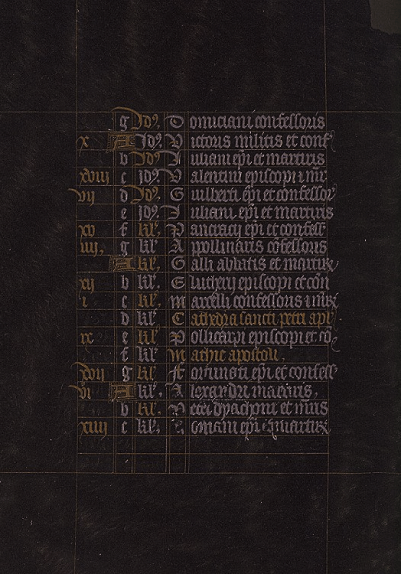 g Idꝰ Domiciani confessoris
x A Idꝰ Victoris militis et conf
b Idꝰ Iuliani epi et martiris
xviii c Idꝰ Valentini episcopi et mr
vii d Idꝰ Guilberti epi et confessor
e Idꝰ Iuliani epi et martiris
xv f kl' Pancracii epi et confess
iiii. g kl' Apollinaris cōfessoris
A kl' Galli abbatis et martir
xii b kl' Eutherii episcopi et con
i c kl' Marcelli confessoris
d kl' Cathedra sancti petri apl
ix e kl' Pollicarpi episcopi et cō
f kl' Mathie apostoli.
xvii g kl' Fortunati epi et confess
vi A kl' Alexandri martiris.
b kl' Petri dyaconi et
xiiii c kl' Romani epi et martir